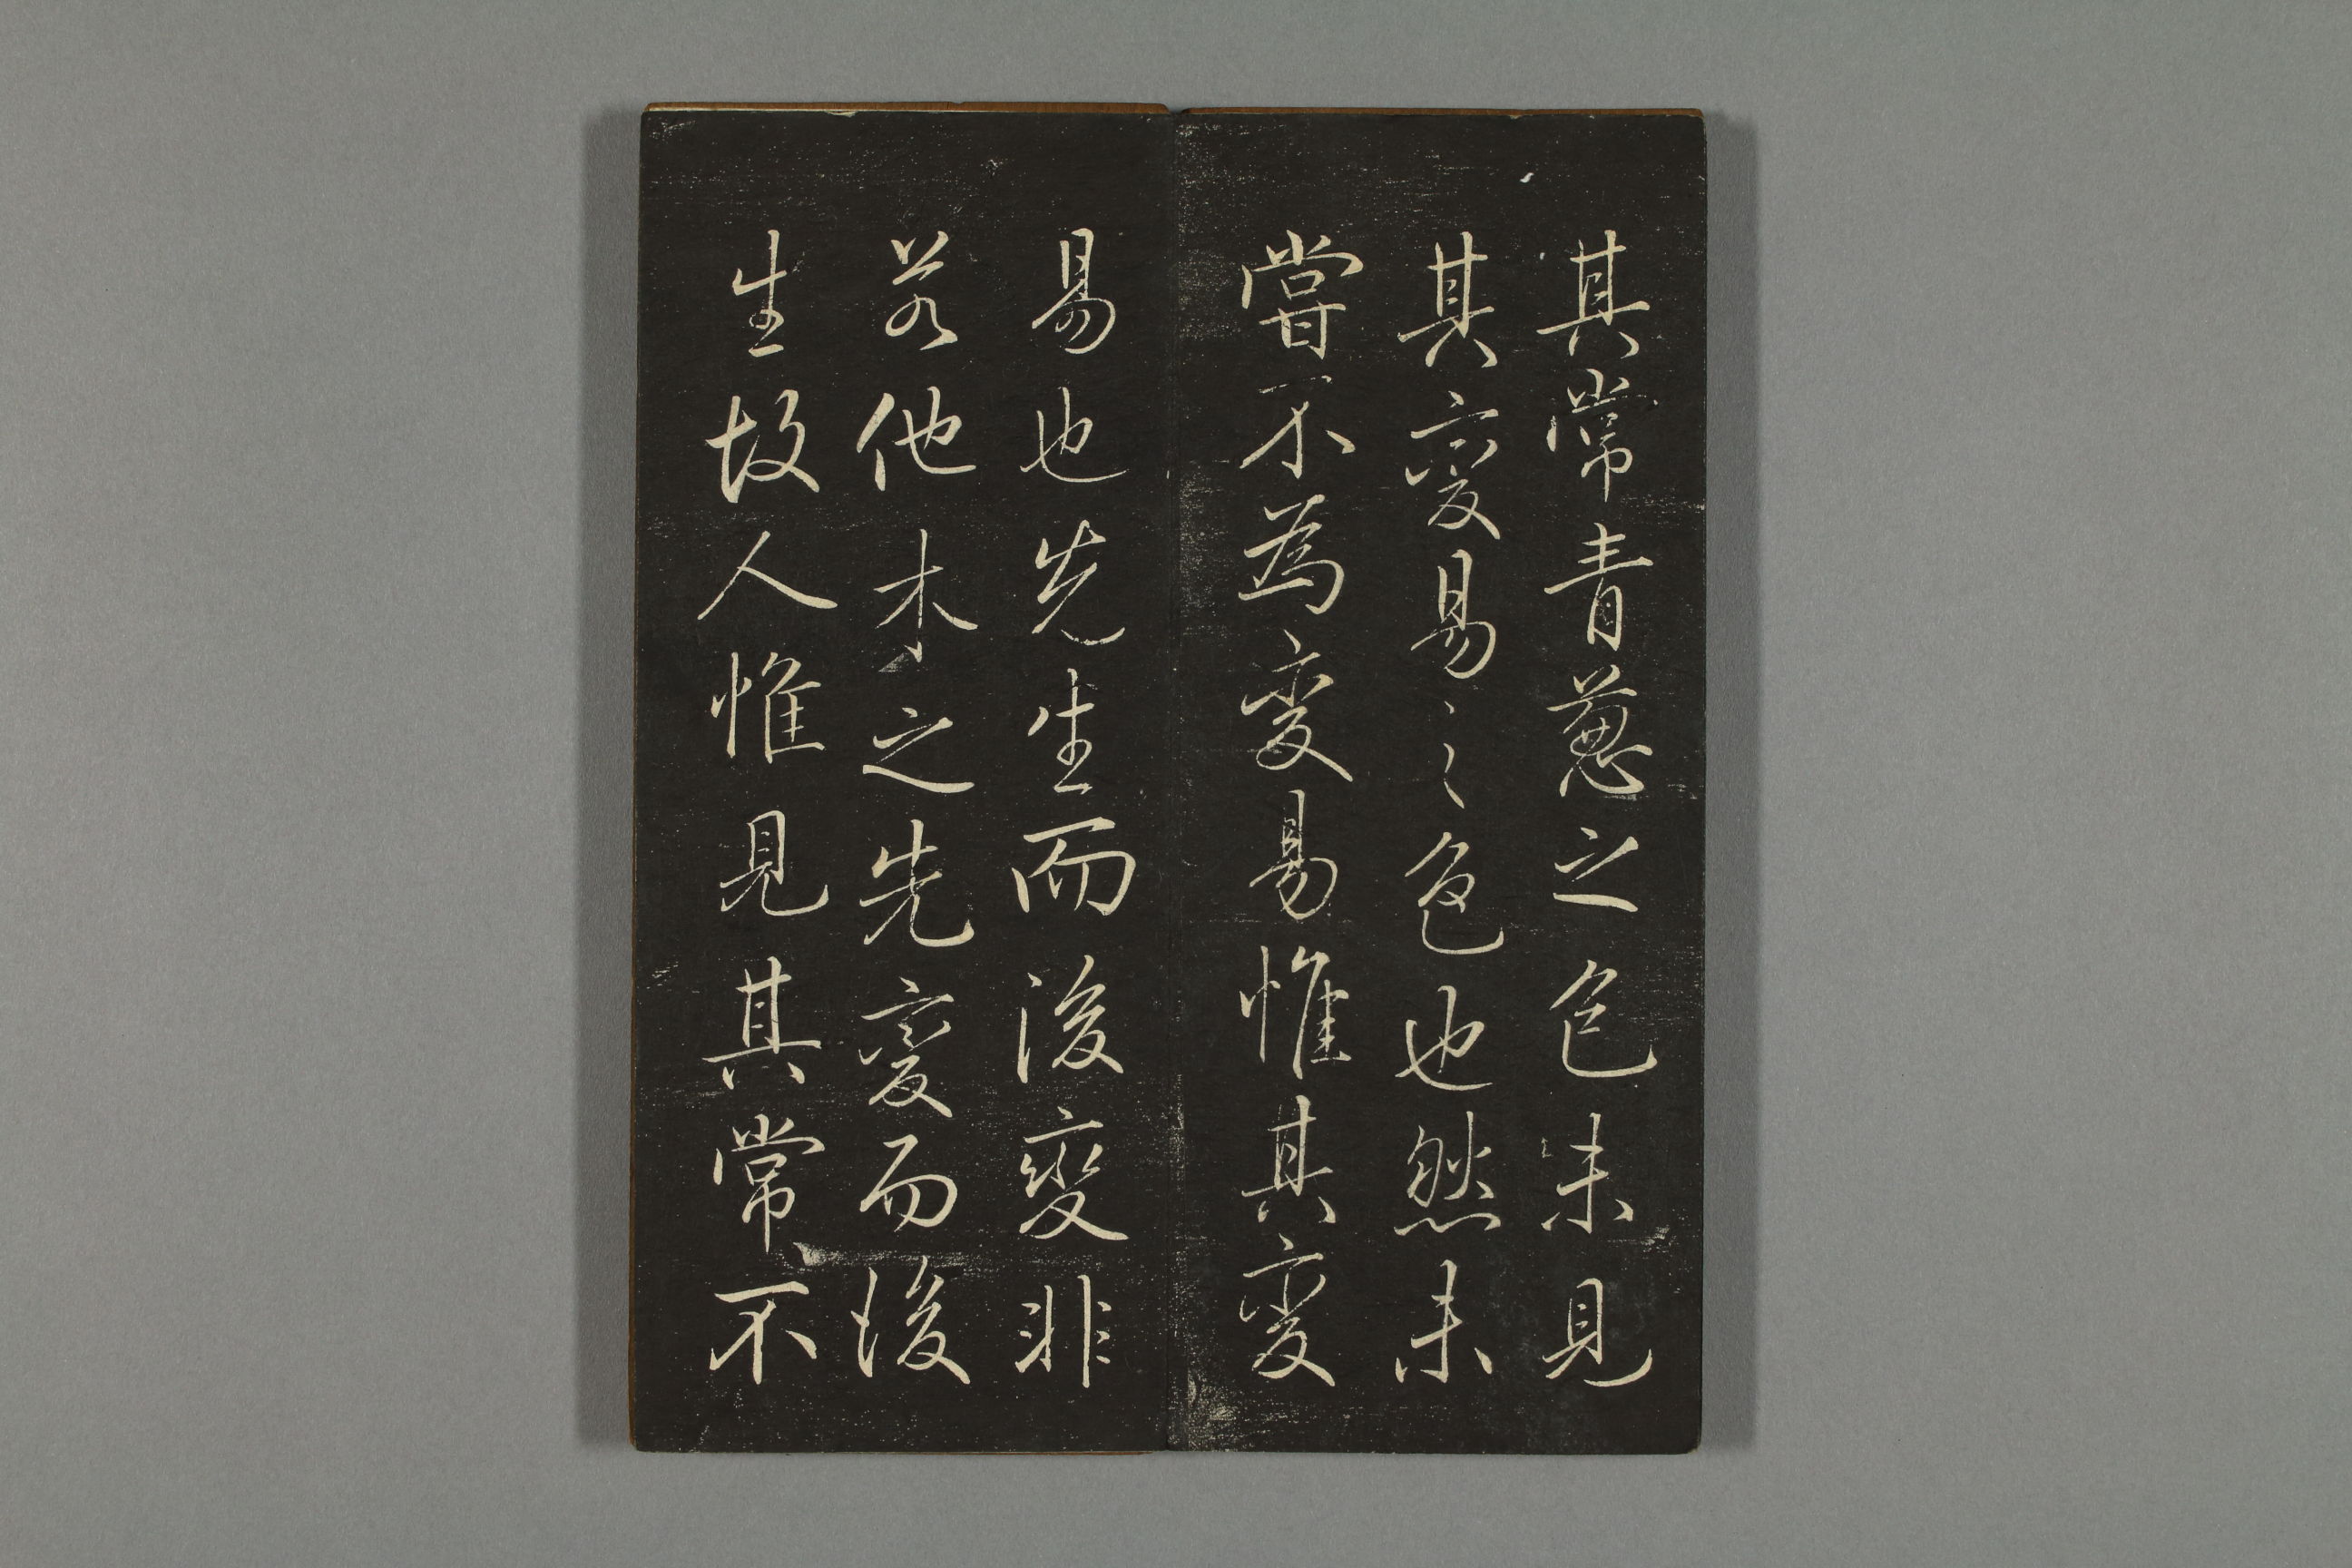 其常青蔥之色未見
其變易之色也然未
嘗不為變易惟其變
易也先生而後變非
若他木之先變而後
生故人惟見其常不